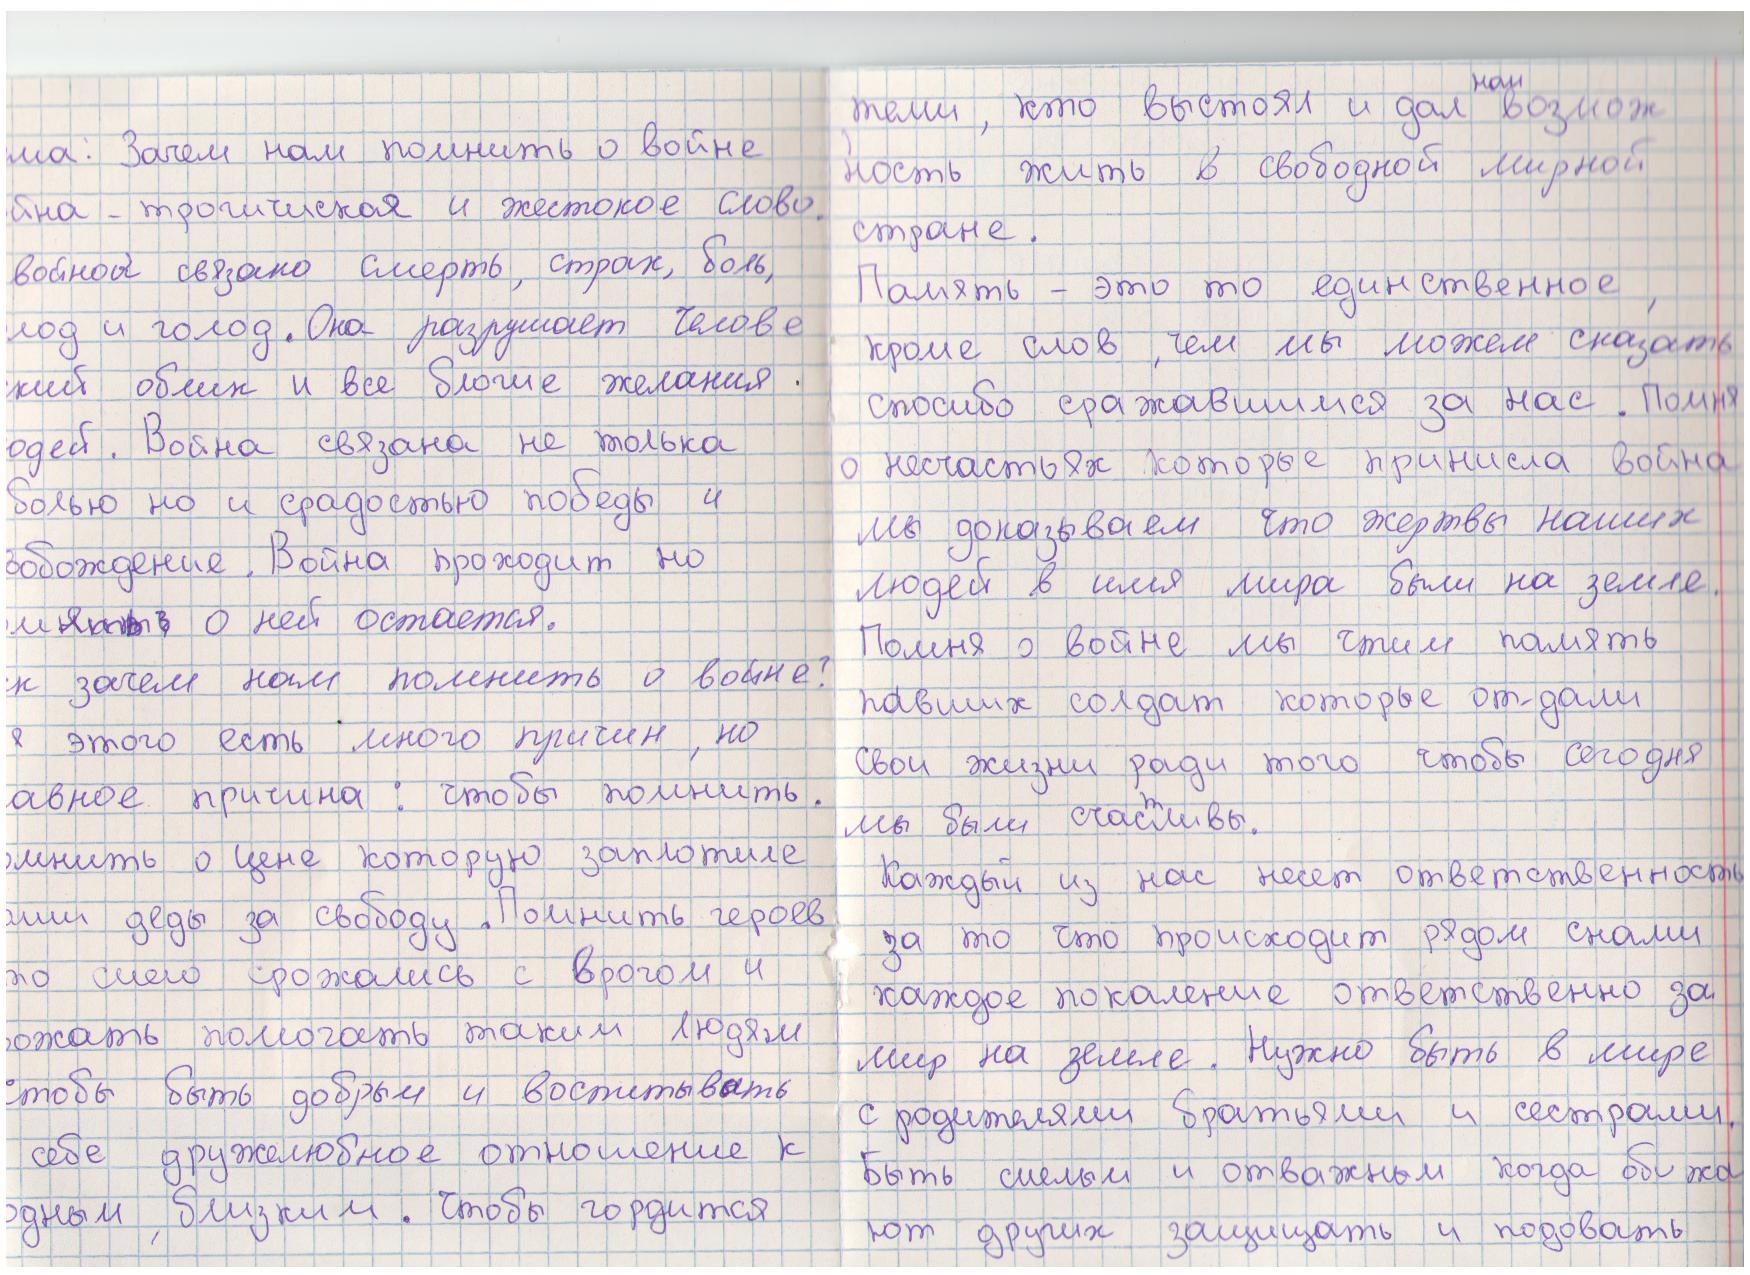 ма: Зачем нам помнить о войне
йна - трогичиская и жестокое слово.
войной связано смерть, страх, боль,
лод и голод. Она разрушает челове
кий облик и все благие желания.
юдей. Война связана не толька
болью но и срадостью победы и
вобождение. Война проходит но
о ней остается.
к зачем нам помнить о войне?
я этого есть много причин, но
авное причина: чтобы помнить.
омнить о цене которую заплотиле
аши деды за свободу. Помнить героев
то смело срожались с врогом и
ожать помогать таким людям
чтобы быть добрым и воспитывать
себе дружелюбное отношение к
одным, близким. Чтобы гордится
теми, кто выстоял и дал нам возмож
ность жить в свободной мирной
стране.
Память - это то единственное,
кроме слов, чем мы можем сказать
спосибо сражавшимся за нас. Помня
о несчастьях которые принисла война
мы доказываем что жертвы наших
людей в имя мира были на земле.
Помня о войне мы чтим память
павших солдат которые от-дали
свои жизни ради того чтобы сегодня
мы были счастливы.
Каждый из нас несет ответственность
за то что происходит рядом снами
каждое покаление ответственно за
мир на земле. Нужно быть в мире
с родителями братьями и сестрами.
Быть смелым и отважным когда обижа
ют других защищать и подовать